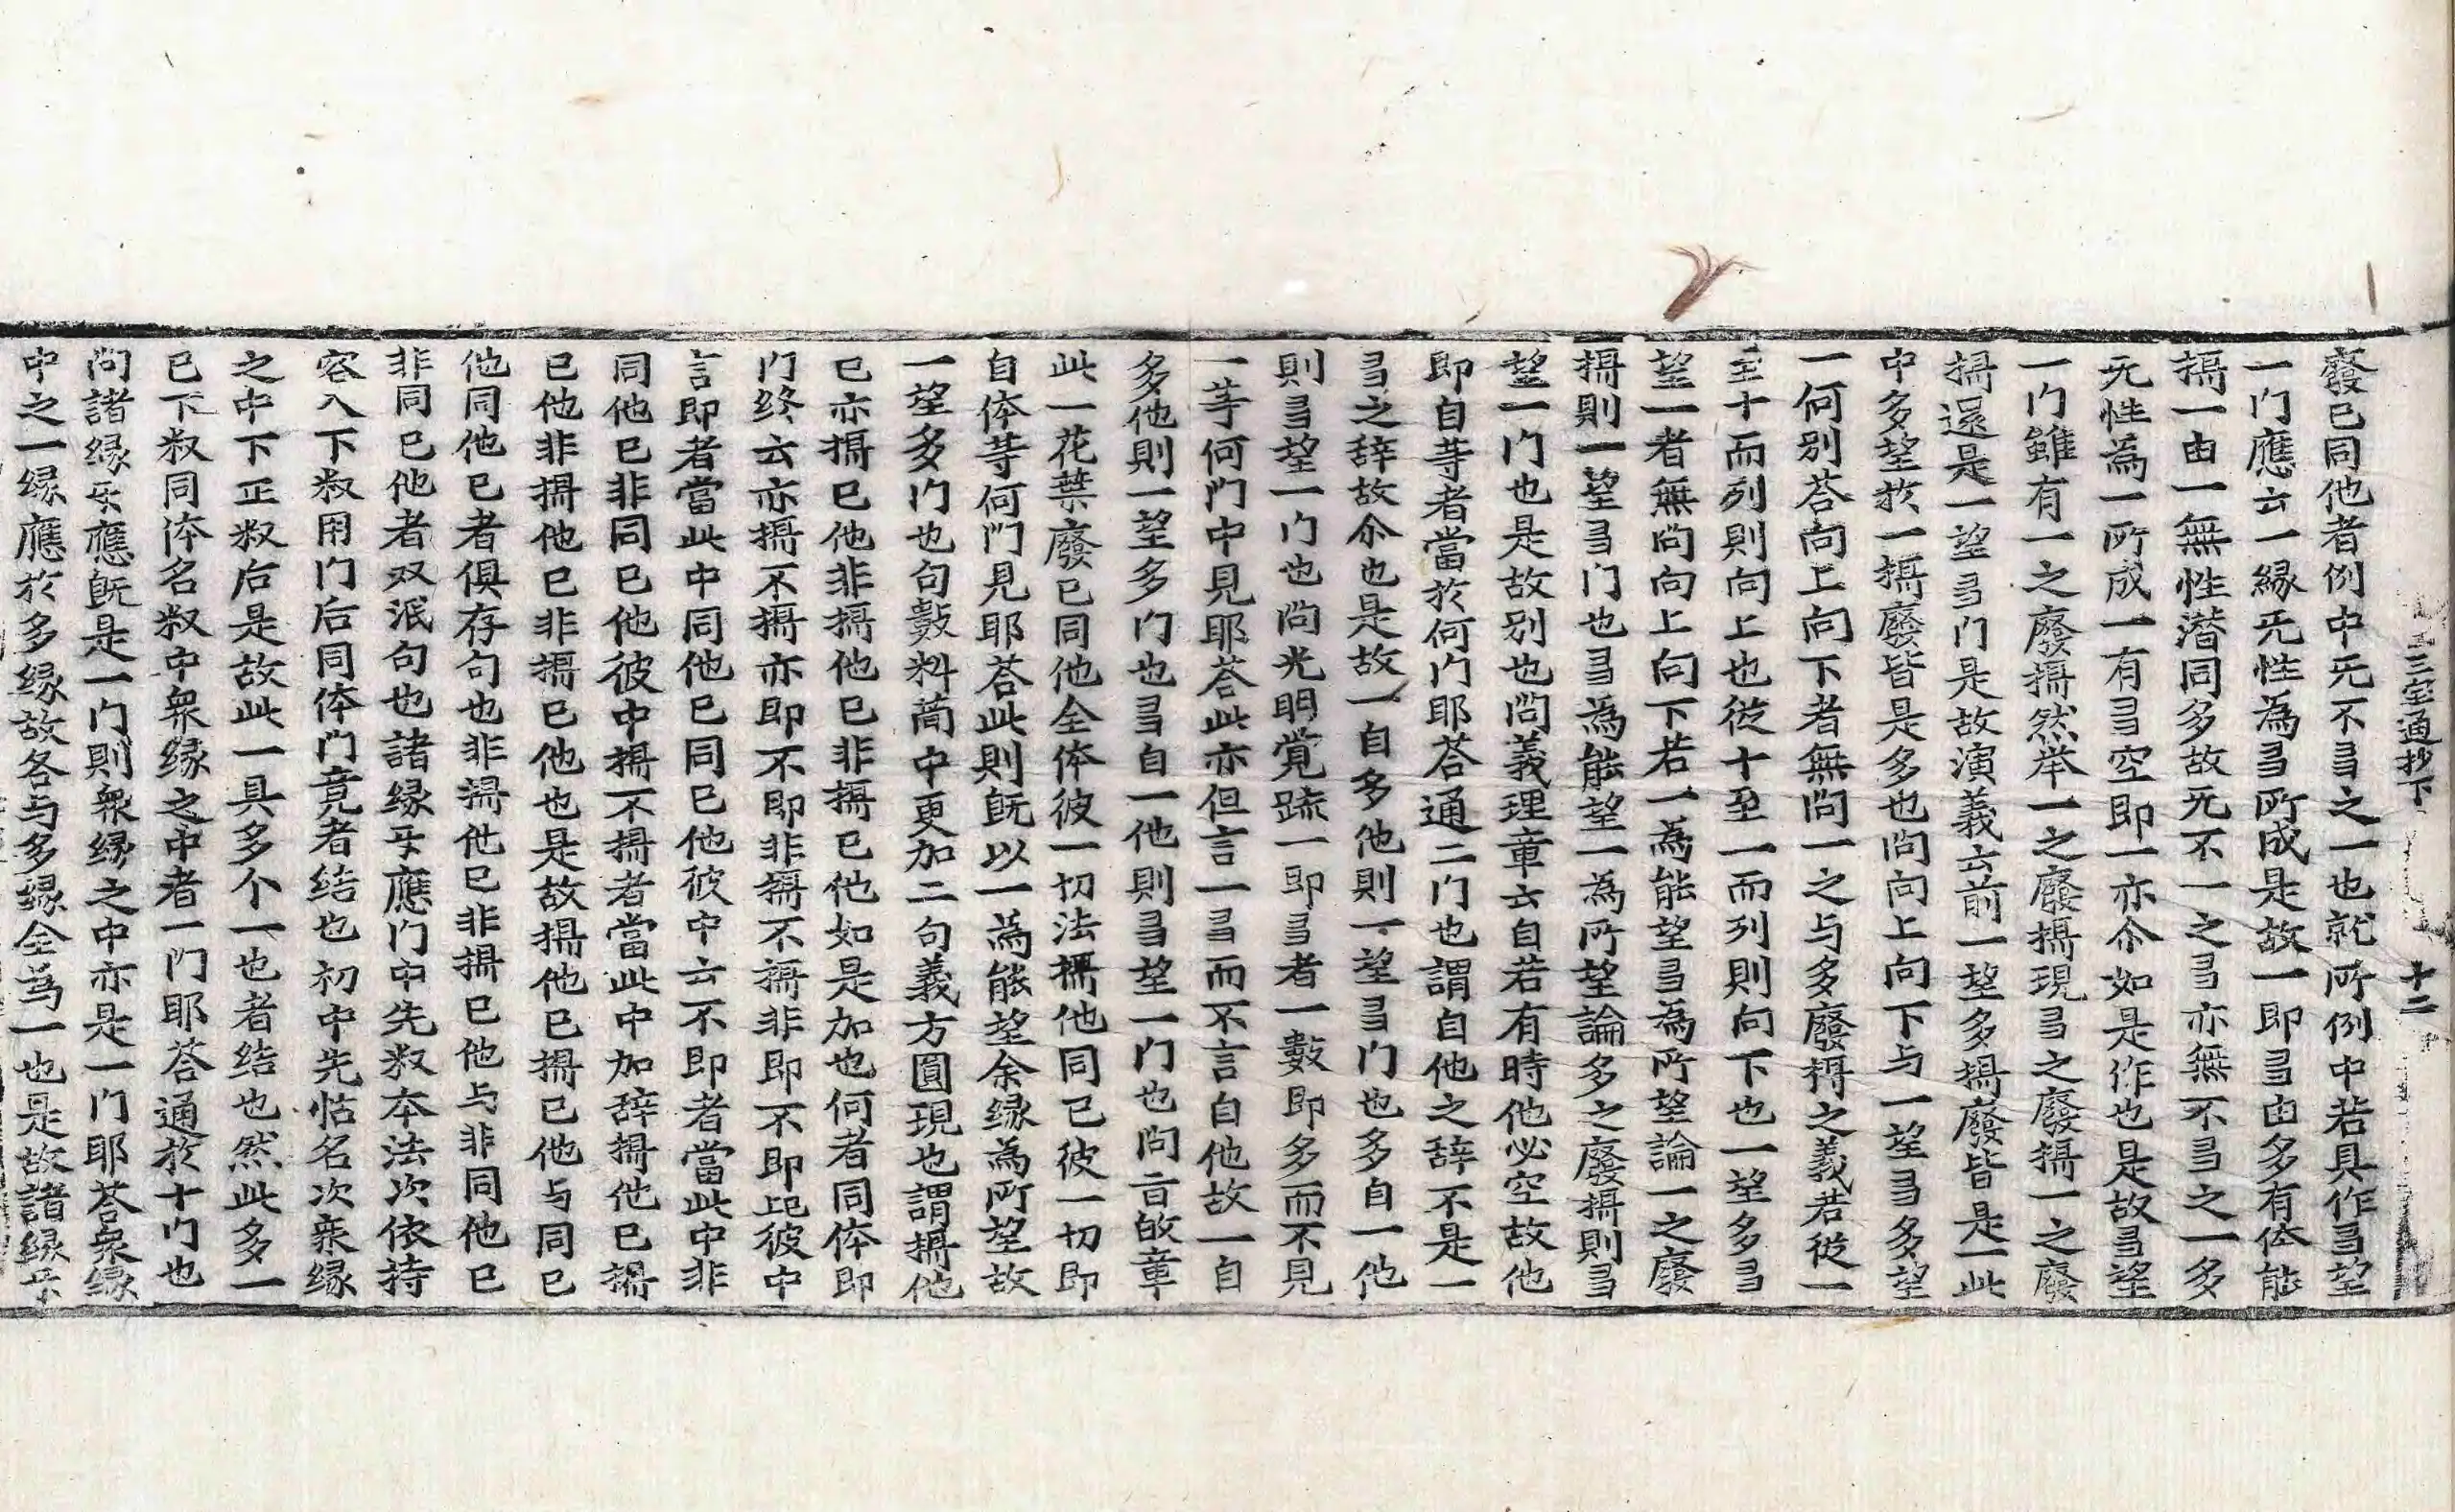 三宝通抄下 十二
廢已同他者例中无不多之一也就所例中若具作多望
一门應云一縁无性為多所成是故一即多由多有体能
攝一由一無性潜同多故无不一之多亦無不多之一多
无性為一所成一有多空即一亦尒如是作也是故多望
一门雖有一之廢攝然举一之廢攝現多之廢攝一之廢
攝還是一望多门是故演義云前一望多攝廢皆是一此
中多望於一攝廢皆是多也问向上向下与一望多多望
一何別荅向上向下者無问一之与多廢攝之義若從一
至十而列則向上也從十至一而列則向下也一望多多
望一者無问向上向下若一為能望多為所望論一之廢
攝則一望多门也多為能望一為所望論多之廢攝則多
望一门也是故别也问義理章云自若有時他必空故他
即自䒭者當於何门耶荅通二门也謂自他之辞不是一
多之辞故尒也是故一自多他則一望多门也多自一他
則多望一门也问光明覚䟽一即多者一數即多而不見
一䒭何门中見耶荅此亦但言一多而不言自他故一自
多他則一望多门也多自一他則多望一门也问旨㱿章
此一花葉廢已同他全体彼一切法攝他同已彼一切即
自体䒭何门見耶荅此則旣以一為能望余縁為所望故
一望多门也句數料蕳中更加二句義方圓現也謂攝他
已亦攝已他非攝他已非攝已他如是加也何者同体即
门终云亦攝不攝亦即不即非攝不攝非即不即此彼中
言即者當此中同他已同已他彼中云不即者當此中非
同他已非同已他彼中攝不攝者當此中加辞攝他已攝
已他非攝他已非攝已他也是故攝他已攝已他与同已
他同他已者俱存句也非攝他已非攝已他与非同他已
非同已他者双泯句也諸縁㸦應门中先叙本法次依持
容入下叙用门后同体门竟者结也初中先怗名次衆縁
之中下正叙后是故此一具多个一也者结也然此多一
已下叙同体名叙中衆縁之中者一门耶荅通於十门也
问諸縁㸦應旣是一门則衆縁之中亦是一门耶荅衆縁
中之一縁應於多縁故各与多縁全為一也是故諸縁㸦